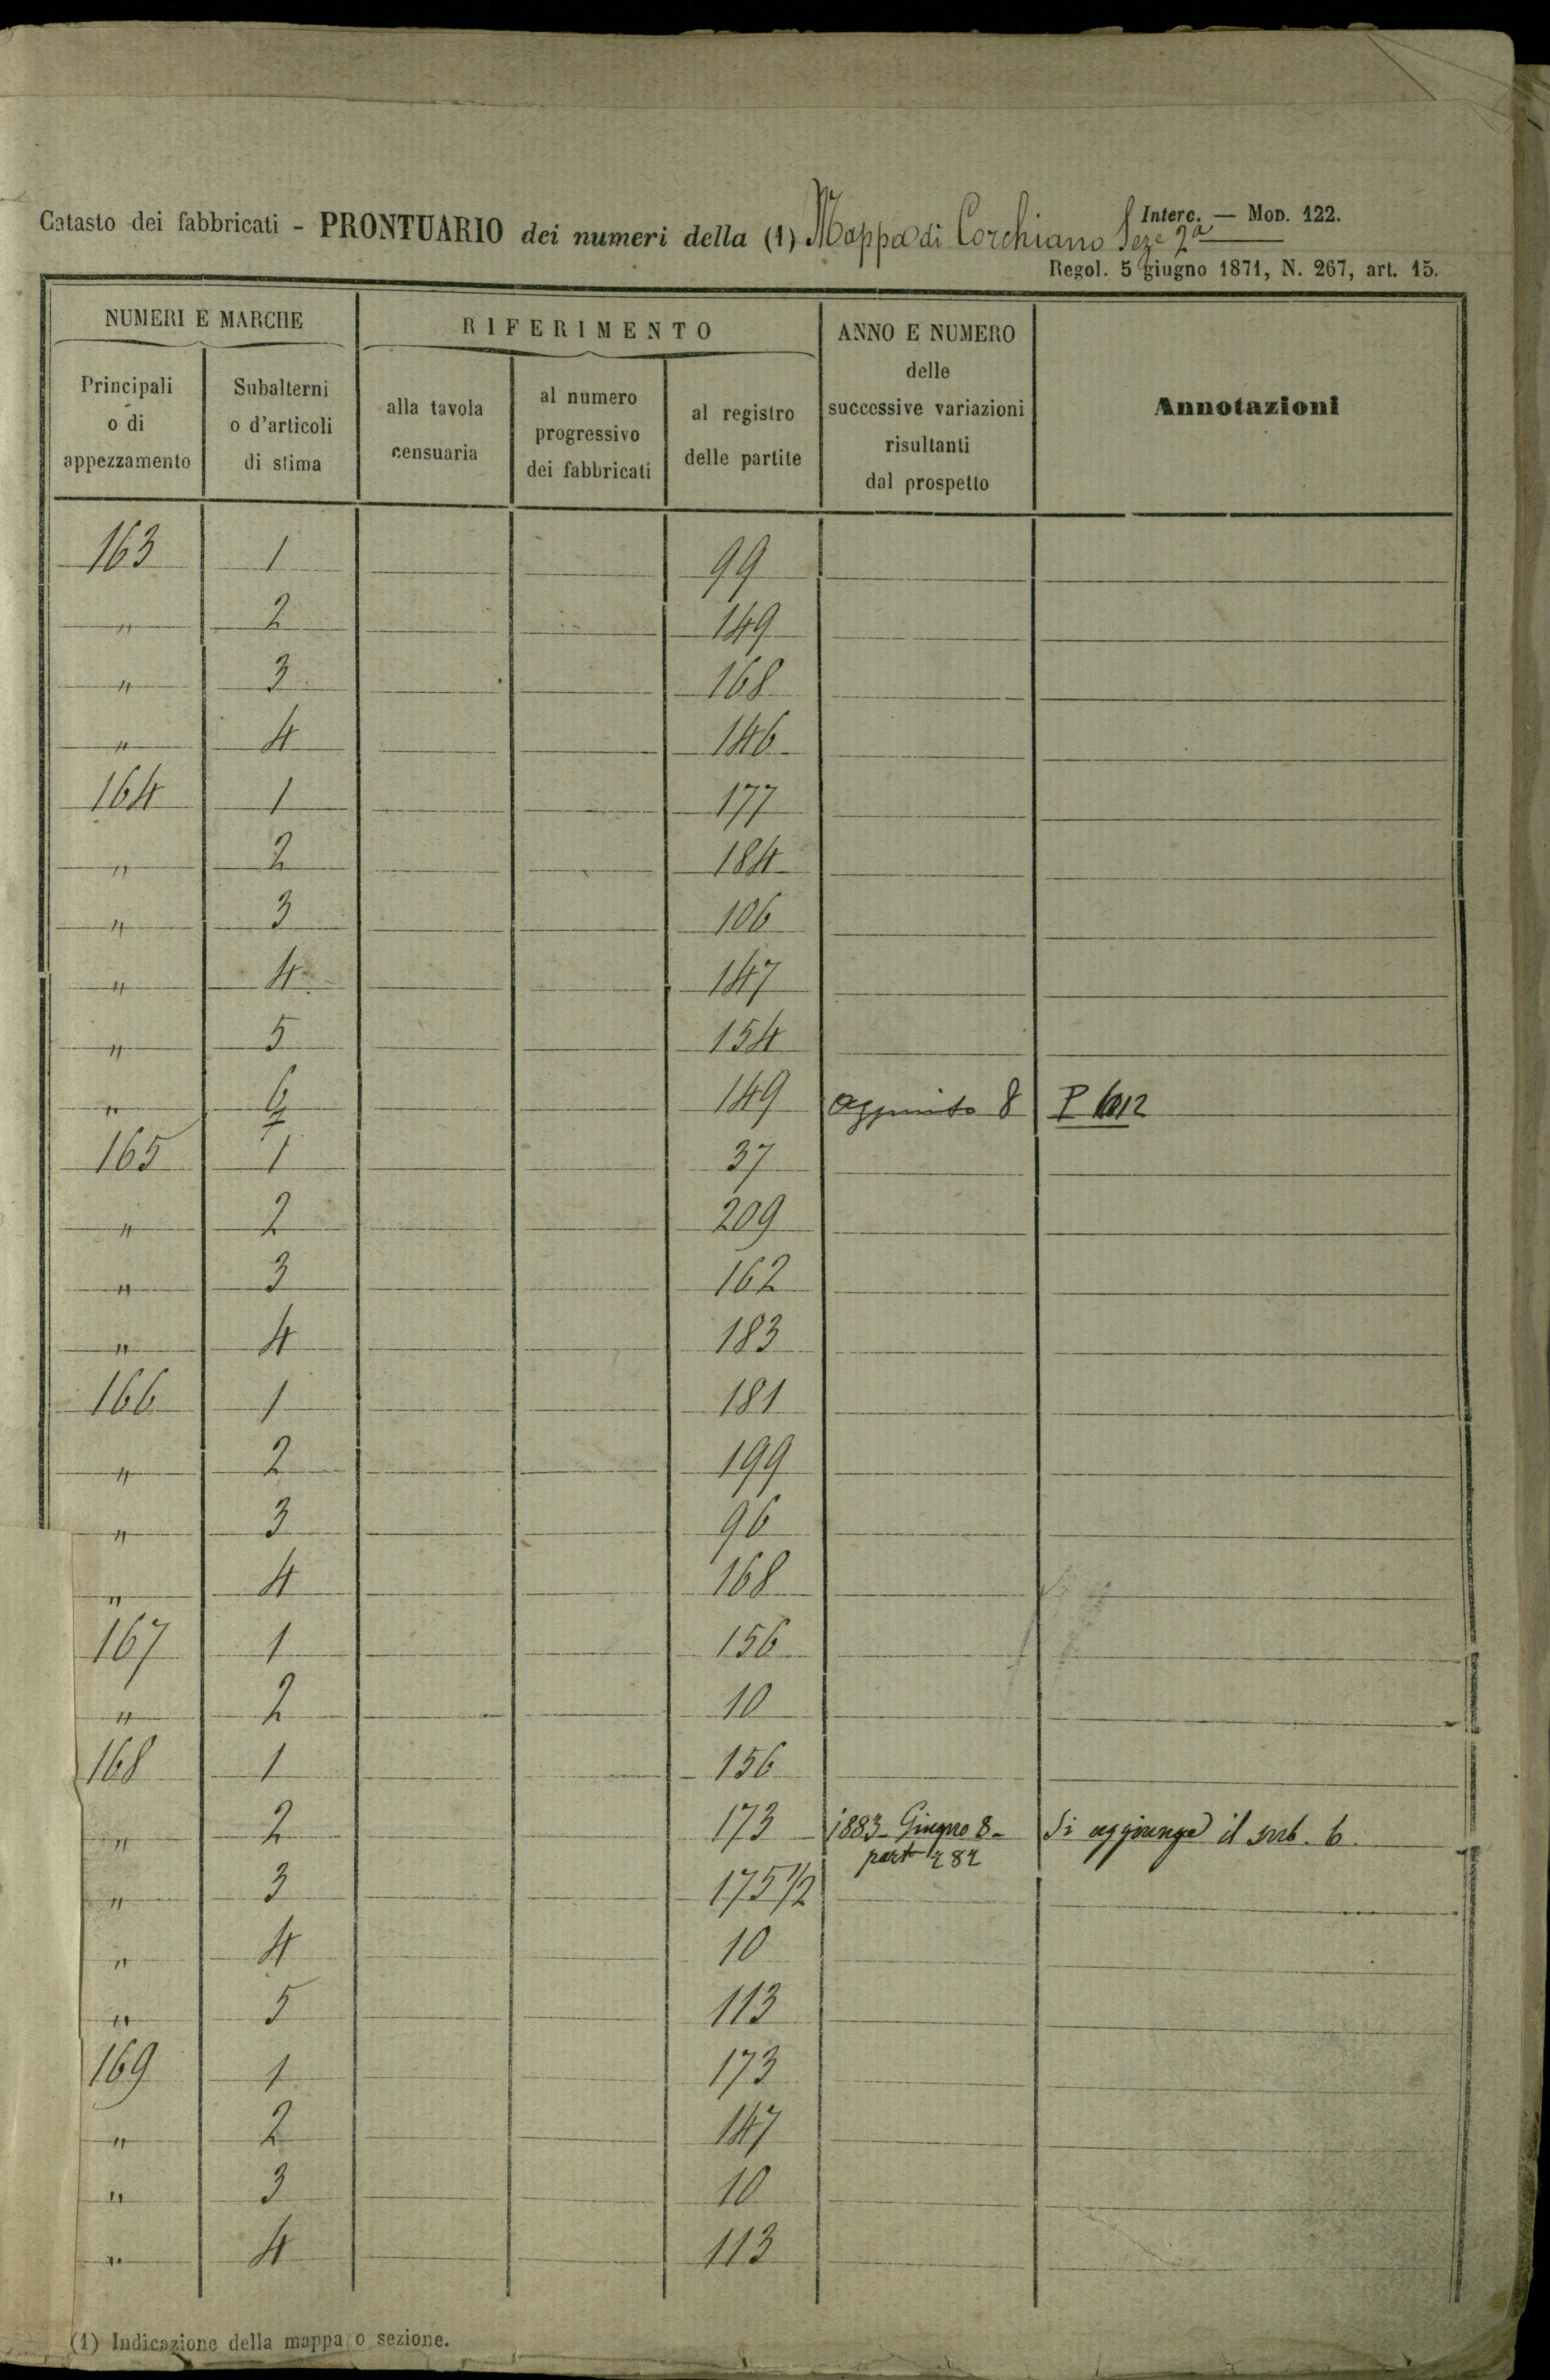 Catasto dei fabbricati - PRONTUARIO dei numeri della (1) Mappa di Corchiano Seze 2a
Interc. — Mod. 122.
Regol. 5 giugno 1871, N. 267, art. 15.
NUMERI E MARCHE
RIFERIMENTO
ANNO E NUMERO
delle
successive variazioni
risultanti
dal prospetto
Annotazioni
Principali
o di
appezzamento
Subalterni
o d'articoli
di stima
alla tavola
censuaria
al numero
progressivo
dei fabbricati
al registro
delle partite
163 1 99
" 2 149
" 3 168
" 4 146
164 1 177
" 2 184
" 3 106
" 4 147
" 5 154
" 6 149 aggiunto 8 P
7
165 1 37
" 2 209
" 3 162
" 4 183
166 1 181
" 2 199
" 3 96
" 4 168
167 1 156
" 2 10
168 1 156
" 2 173 1883 - Giugno 8 - Si aggiunge il sub. 6.
part 282
" 3 175 1/2
" 4 10
" 5 113
169 1 173
" 2 147
" 3 10
" 4 113
(1) Indicazione della mappa o sezione.